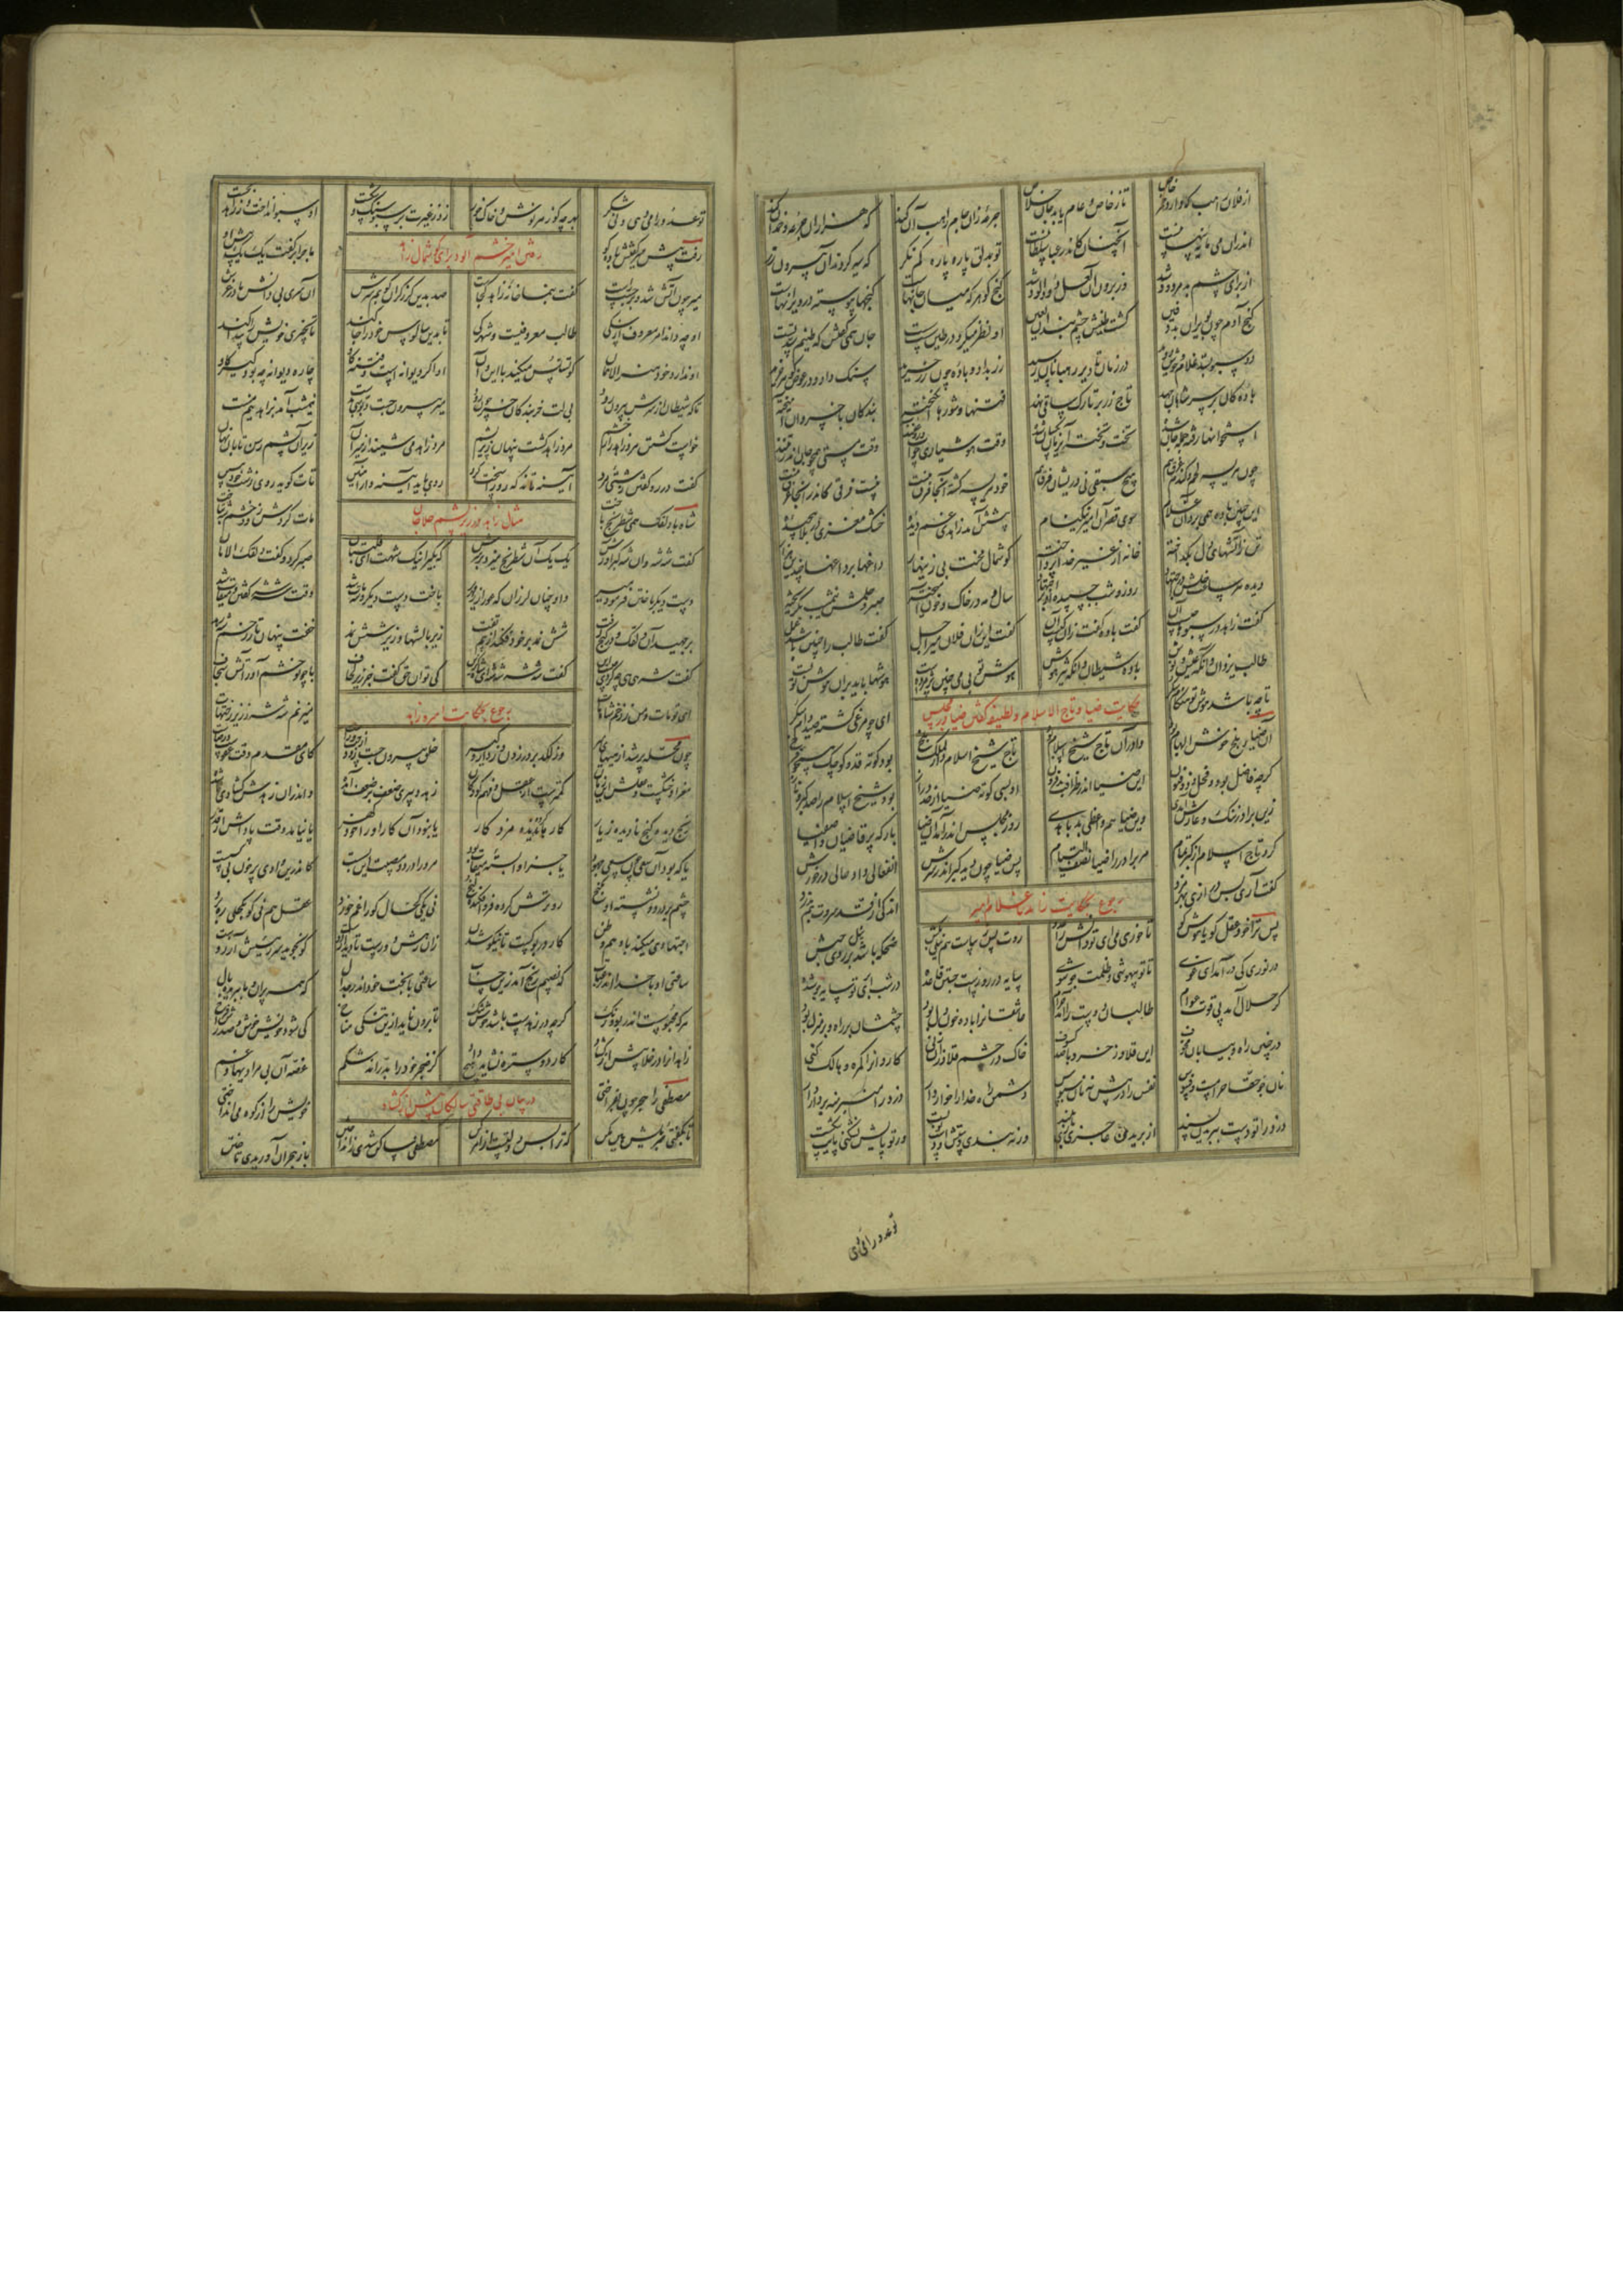 از فلان راهب که دارد خمر خاص تا ز خاص و عام یابد جان خلاص جرعۀ زان جام راهب آن کند که هزاران جره و خمدان کند
اندران می مایه پنهانیست آنچنان کاندر عبا سلطانیست تو بدلق پاره پاره کم نگر که سیه کردند از بیرون زر
از برای چشم بد مردود شد وز برون آن لعل دودآلود شد گنج گوهر کی میان خانهاست گنجها پیوسته در ویرانهاست
گنج آدم چون بویران بد دفین گشت طینش چشم بند آن لعین او نظر میکرد در طین سست سست جان همی گفتش که طینم سد تست
دو سبو بستد غلام و خوش دوید در زمان تا دیر رهبانان رسید زر بداد و باده چون زر خرید سنگ داد و در عوض گوهر خرید
باده کان بر سر شاهان جهد تاج زر بر تارک ساقی نهد فتنها و شورها انگیخته بندگان با خسروان آمیخته
استخوانها رفته جمله جان شده تخت و تخته آن زمان یکسان شده وقت هوشیاری چو آب و روغنند وقت مستی همچو جان اندر تنند
چون هریسه لحم و گندم غرق هم هیچ سبقی نی دریشان فرق هم خود هریسه گشته آنجا فرق نیست نیست فرقی کاندر آنجا غرق نیست
این چنین باده همی برد آن غلام سوی قصر آن امیر نیکنام پیشش آمد زاهدی غم دیده خشک مغزی در بلا پیچیده
تن ز آتشهای دل بگداخته خانه از غیر خدا پرداخته گوشمال محنت بی زینهار داغها بر داغها چندین هزار
دیده هر ساعت دلش در اجتهاد روز و شب چسپیده او بر اجتهاد سال و مه در خاک و خون آمیخته صبر و حلمش نیمشب بگریخته
گفت زاهد در سبوها چیست آن گفت باده گفت زان کیست آن گفت این زان فلان میر اجل گفت طالب را چنین باشد عمل
طالب یزدان و آنگه عیش و نوش باده شیطان و آنگه نیز هوش هوش تو بی می چنین پژمرده است هوشها باید بران هوش تو بست
تا چه باشد هوش تو هنگام سکر ای چو مرغی گشته صید دام سکر
حکایت ضیا و تاج الاسلام و لطیفه گفتن ضیا در مجلس
آن ضیا در بلخ خوش الهام بود دادر آن تاج شیخ اسلام بود تاج شیخ اسلام دار الملک بلخ بود کوته قد و کوچک همچو فرخ
گرچه فاضل بود و فحل و ذوفنون این ضیا اندر ظرافت بد فزون او بسی کوته ضیا از حد دراز بود شیخ اسلام را صد کبر و ناز
زین برادر ننگ و عارش آمدی وین ضیا هم واعظی بد با هدی روز مجلس اندر آمد آن ضیا بارگه پر قاضیان و اصفیا
کرد تاج اسلام از کبر تمام مر برادر را ضیا نصف القیام پس ضیا چون دید کبر اندر سرش انفعالی داد حالی در خورش
گفت آری بس درازی بهر مزد اندکی از قد سروت هم بدزد
رجوع بحکایت زاهد با غلام امیر
پس ترا خود عقل کو یا هوش کو تا خوری می ای تو دانش را عدو روت بس زیباست هم نیلی بکش ضحکه باشد نیل بر روی حبش
در تو نوری کی درآمد ای غوی تا تو بیهوشی و ظلمت جو شوی سایه در روزست جستن قاعده در شب ابری تو سایه جو شده
گر حلال آمد پی قوت عوام طالبان دوست را آمد حرام عاشقانرا باده خون دل بود چشمشان بر راه و بر منزل بود
در چنین راه و بیابان مخوف این قلاوز خرد با صد کسوف خاک در چشم قلاوزان زنی کاروانرا گمره و هالک کنی
نان جو حقا حرامست و فسوس نفس را در پیش نه نان سبوس دشمن راه خدا را خوار دار دزد را منبر منه بر دار دار
دزد را تو دست ببریدن پسند از بریدن عاجزی دستش ببند ورنه بندی دستش او دست تو بست ور تو پایش نشکنی پایت شکست
تو عدو را می دهی
تو عدو را می دهی و نی شکر بهر چه گو زهر نوش و خاک خور زد ز غیرت بر سبو سنگ و شکست او سبو انداخت و از زاهد بجست
رفت پیش میر گفتش باده کو ماجرا را گفت یک یک پیش او
رفتن امیر خشم آلود برای گوشمال زاهد
میر چون آتش شد و برجست راست گفت بنما خانه زاهد کجاست صد بدین گرز گران کوبم سرش آن سر بی دانش مادر غرش
او چه داند امر معروف از سگی طالب معروفیست و شهرگی تا بدین سالوس خود را جا کند تا بچیزی خویش را پیدا کند
او ندارد خود هنر الا همان کو تسلس میکند با این و آن او اگر دیوانه است و فتنه کاو چاره دیوانه چه بود کیر گاو
تا که شیطان از سرش بیرون رود بی لت خربندگان خر چون رود میر بیرون جست دبوسی بدست نیمشب آمد بزاهد نیم مست
خواست کشتن مرد زاهد را ز خشم مرد زاهد گشت پنهان زیر پشم مرد زاهد می شنید از میر آن زیر پشم آن رسن تابان نهان
گفت در رو گفتن زشتی مرد آینه تاند که رو را سخت کرد روی باید آینه وار آهنین تات گوید روی زشت خود ببین
مثال زاهد در زیر پشم حلاجان
شاه با دلقک همی شطرنج باخت مات کردش زود خشم شه بتاخت
گفت شه شه وان شه کبر آورش یک یک آن شطرنج میزد بر سرش که بگیر اینک شهت ای قلتبان صبر کرد و گفت دلقک الامان
دست دیگر باختن فرمود میر او چنان لرزان که عور از زمهریر باخت دست دیگر و شه مات شد وقت شه شه گفتن و میقات شد
برجهید آن دلقک و در کنج رفت شش نمد بر خود فگند از بیم تفت زیر بالشها و زیر شش نمد خفت پنهان تا ز زخم شه رهد
گفت شه هی هی چه کردی چیست این گفت شه شه شه شه ای شاه گزین کی توان حق گفت جز زیر لحاف با چو تو خشم آور آتش سجاف
ای تو مات و من ز زخم شاه مات میزنم شه شه ز زیر رختهات
رجوع بحکایت امیر و زاهد
چون محله پر شد از هیهای میر وز لگد بر در زدن وز دار و گیر خلق بیرون جست زود از چپ و راست کای مقدم وقت عفوست و رضاست
مغز او خشکست و عقلش این زمان کمترست از عقل و فهم کودکان زهد و پیری ضعف بر ضعف آمده و اندران زهدش گشادی ناشده
رنج دیده گنج نادیده ز یار کارها کرده ندیده مزد کار یا نبود آن کار او را خود گهر یا نیامد وقت پاداش از قدر
یا که بود آن سعی چون سعی جهود یا جزا وابسته میقات بود مر ورا درد و مصیبت این بست کاندرین وادی پر خون بی کس است
چشم پر درد و نشسته او بکنج رو ترش کرده فرو افگنده لنج نی یکی کحال کو را غم خورد نیش عقلی هم نی که بکحلی ره برد
اجتهادی میکند با وهم و ظن کار در بوکست تا نیکو شدن زان رهش دورست تا دیدار دوست کو نجوید سر رئیسیش آرزوست
ساعتی او با خدا اندر عتاب که نصیبم رنج آمد زین حساب ساعتی با بخت خود اندر جدال که همه پران و ما ببریده بال
هر که محبوسست اندر بو و رنگ گرچه در زهدست باشد خوش تنگ تا برون ناید ازین تنگین مناخ کی شود خویش خوش و صدرش فراخ
زاهدانرا در خلا پیش از گشاد کارد و استره نشاید هیچ داد کز ضجر خود را بدراند شکم غصه آن بی مرادیها و غم
در بیان بی طاقتی سالکان پیش از گشاد
مصطفی را هجر چون بفراختی خویش را از کوه می انداختی
تا بگفتی جبرئیلش هین مکن که ترا بس دولتست از امر کن مصطفی ساکن شدی ز انداختن باز هجران آوریدی تاختن